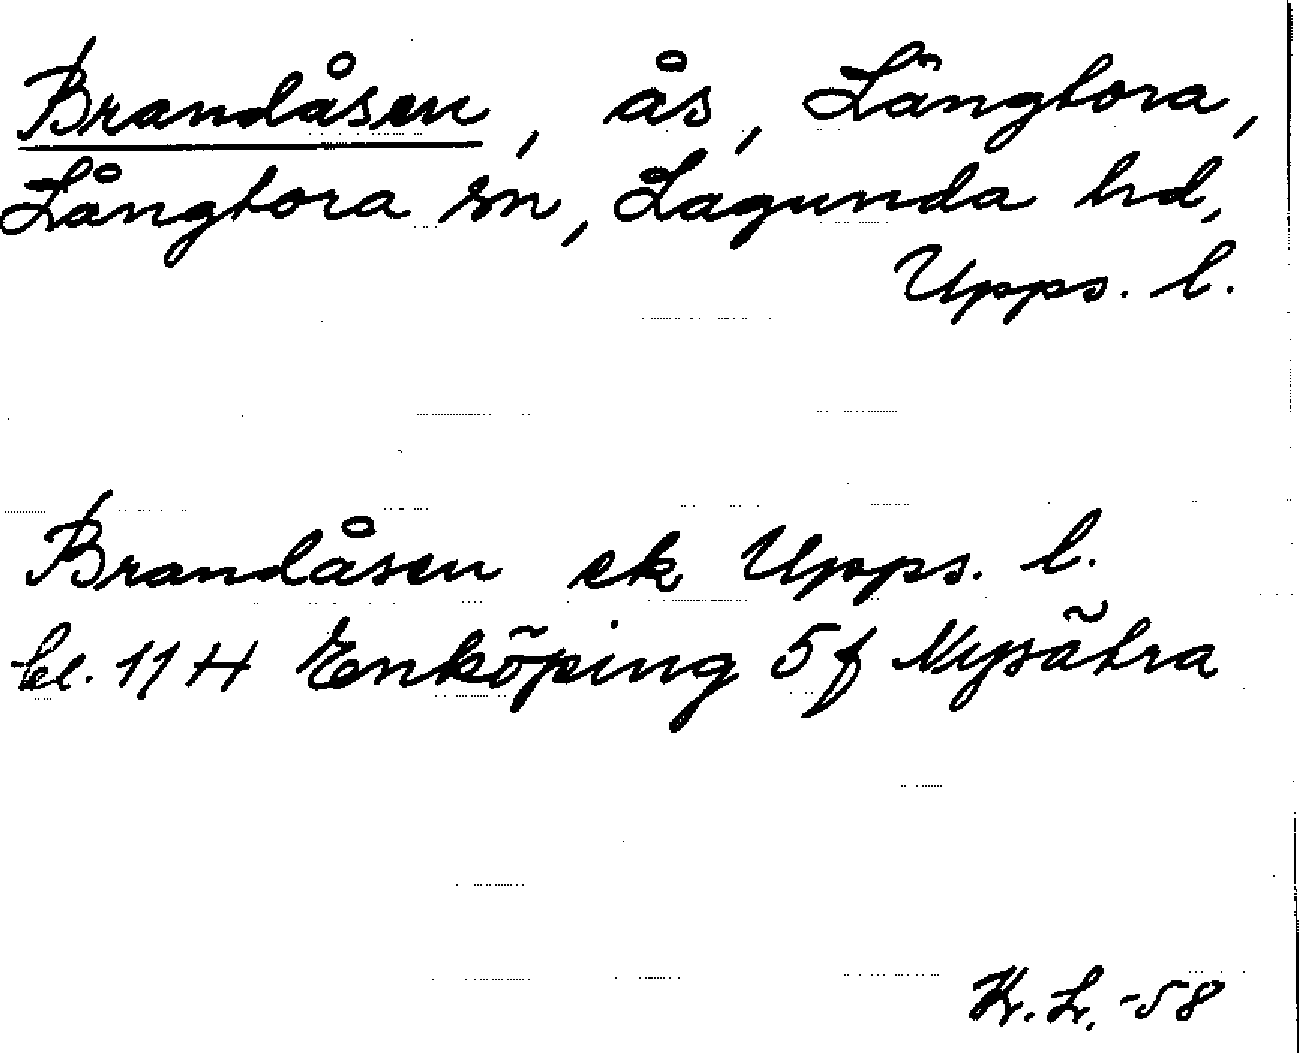 Brandåsen, ås, Långtora,
Långtora sn, Lagunda hd,
Upps. l.
Brandåsen ek Upps. l.
bl. 11 H Enköping 5 f Nysätra
K. L. -58